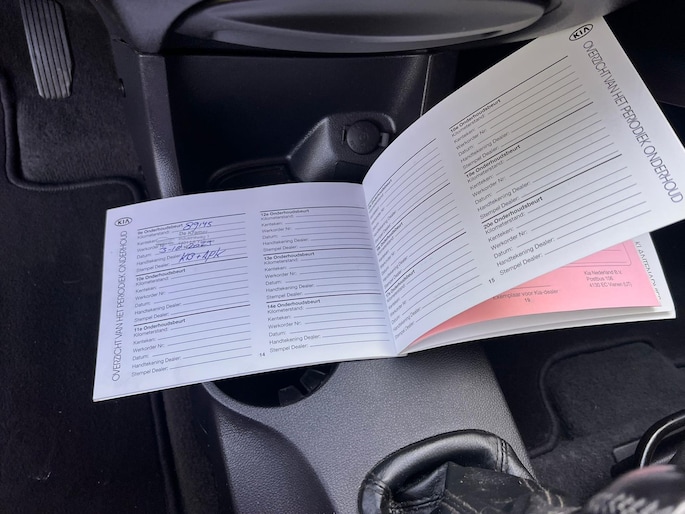 KIA
OVERZICHT VAN HET PERIODIEK ONDERHOUD
9e Onderhoudsbeurt
Kilometerstand:
Kenteken:
Werkorder Nr:
Datum:
Handtekening Dealer:
Stempel Dealer:
10e Onderhoudsbeurt
Kilometerstand:
Kenteken:
Werkorder Nr:
Datum:
Handtekening Dealer:
Stempel Dealer:
11e Onderhoudsbeurt
Kilometerstand:
Kenteken:
Werkorder Nr:
Datum:
Handtekening Dealer:
Stempel Dealer:
12e Onderhoudsbeurt
Kilometerstand:
Kenteken:
Werkorder Nr:
Datum:
Handtekening Dealer:
Stempel Dealer:
13e Onderhoudsbeurt
Kilometerstand:
Kenteken:
Werkorder Nr:
Datum:
Handtekening Dealer:
Stempel Dealer:
14e Onderhoudsbeurt
Kilometerstand:
Kenteken:
Werkorder Nr:
Datum:
Handtekening Dealer:
Stempel Dealer:
14
KIA
OVERZICHT VAN HET PERIODIEK ONDERHOUD
18e Onderhoudsbeurt
Kilometerstand:
Kenteken:
Werkorder Nr:
Datum:
Handtekening Dealer:
Stempel Dealer:
19e Onderhoudsbeurt
Kilometerstand:
Kenteken:
Werkorder Nr:
Datum:
Handtekening Dealer:
Stempel Dealer:
20e Onderhoudsbeurt
Kilometerstand:
Kenteken:
Werkorder Nr:
Datum:
Handtekening Dealer:
Stempel Dealer:
15
Kia Nederland B.V.
Postbus 106
voor Kia-dealer